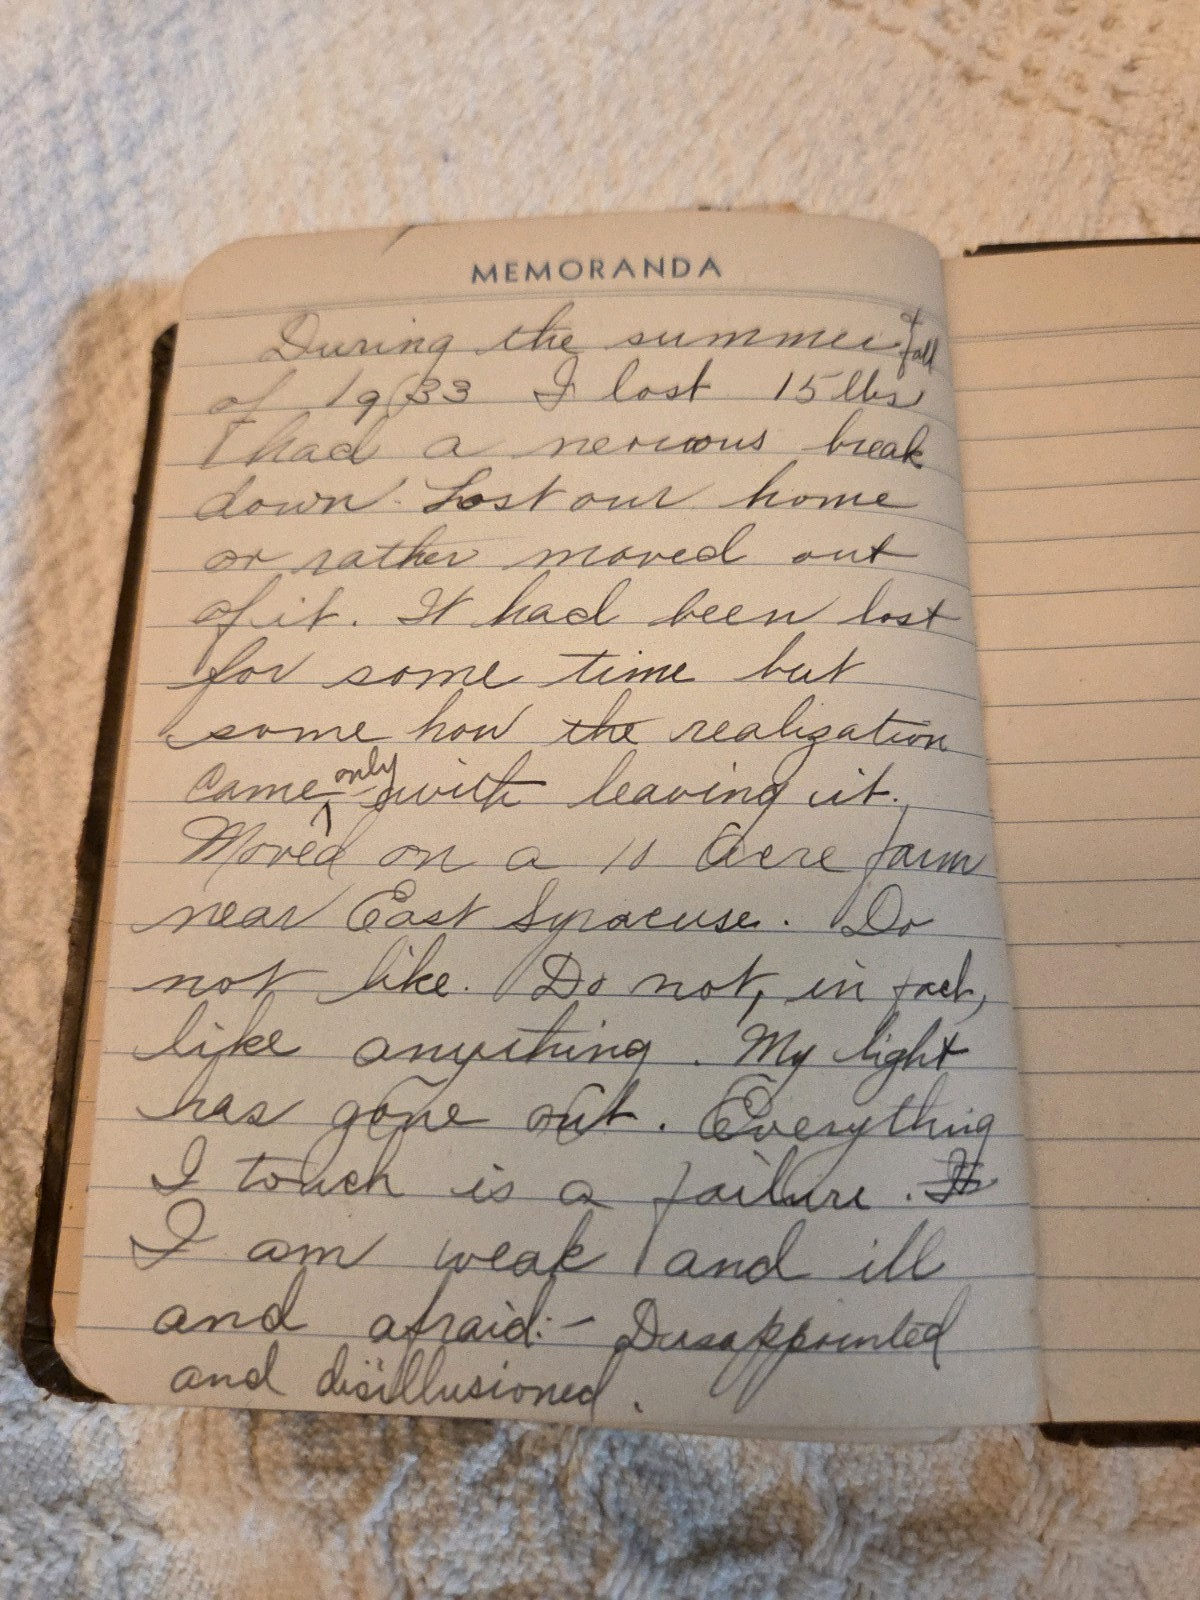 MEMORANDA
During the summer + fall
of 1933 I lost 15 lbs
I had a nervous break
down. Lost our home
or rather moved out
of it. It had been lost
for some time but
some how the realization
came only with leaving it.
Moved on a 10 Acre farm
near East Syracuse. Do
not like. Do not, in fact,
like anything. My light
has gone out. Everything
I touch is a failure. It
I am weak and ill
and afraid:- Dissappointed
and disillusioned.